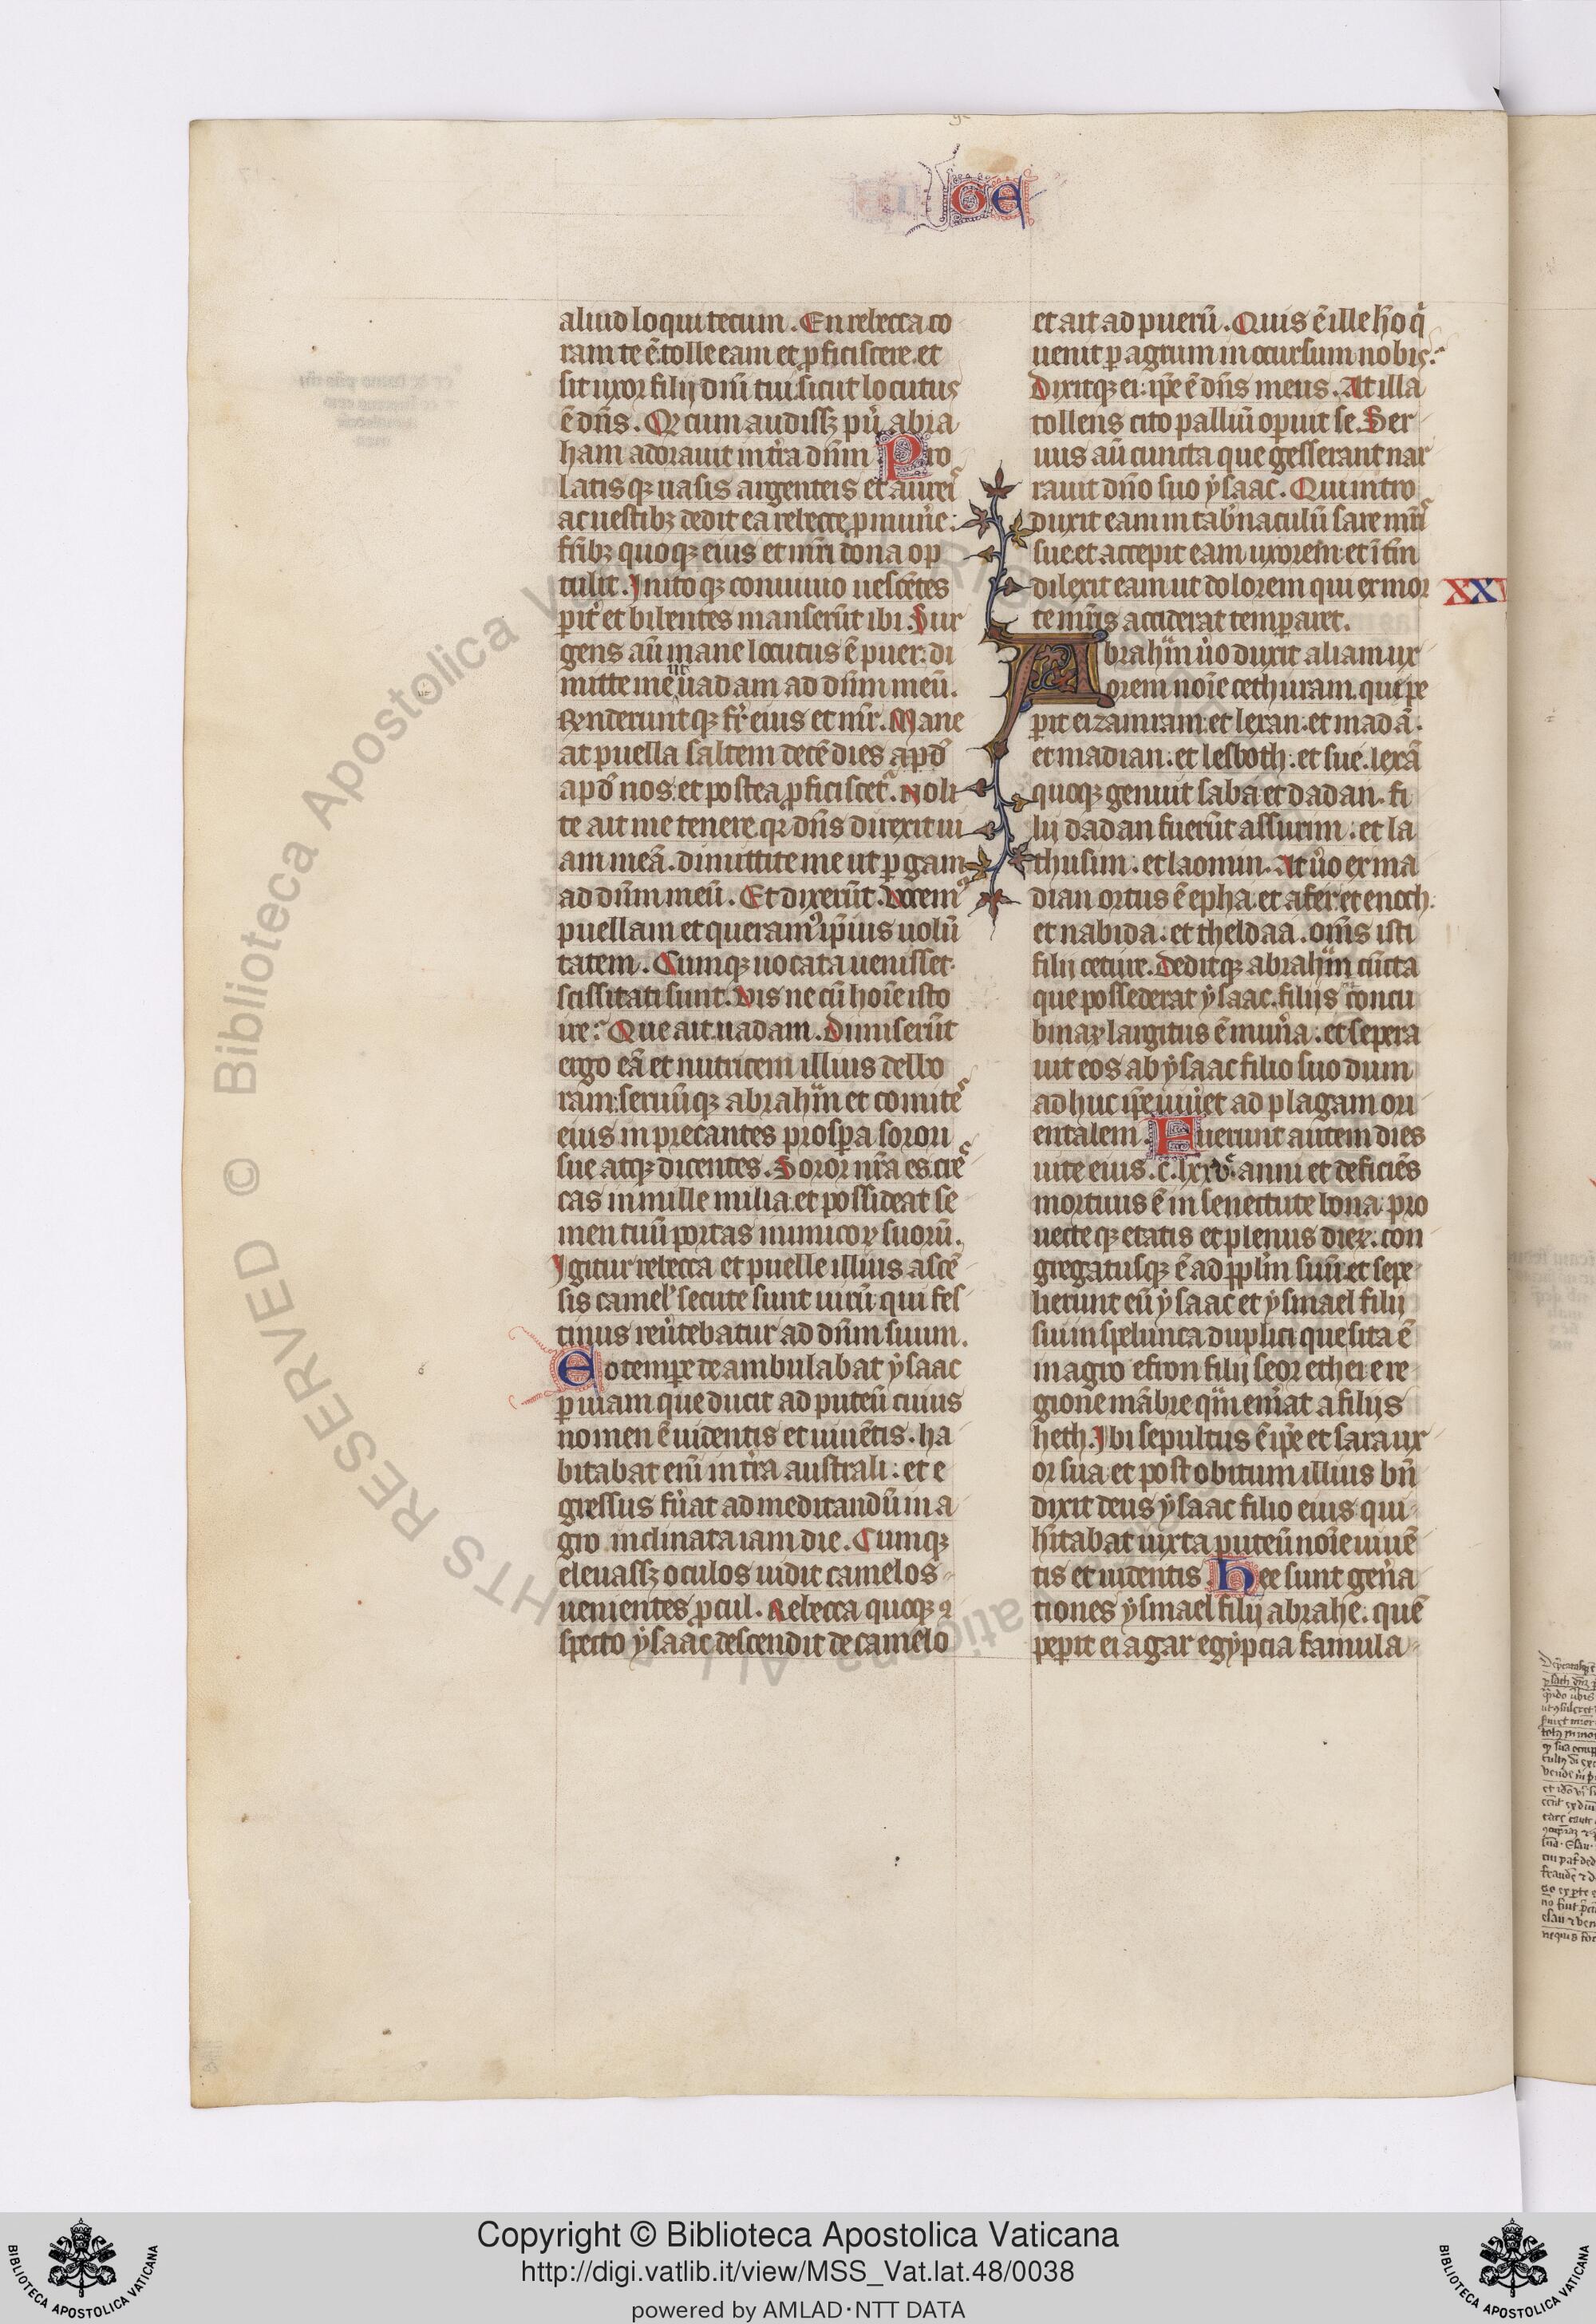 GE
aliud loqui tecum. En rebecca co
ram te ē tolle eam et ꝓficiscere. et
sit uxor filij dn̄i tui sicut locutus
ē dn̄s. Qd̓ cum audissꝫ pu̓ abra
ham adorauit in tr̓a dn̄m Pro
latisqꝫ uasis argenteis et aureis
ac uestibꝫ dedit ea rebecce ꝓ mun̓e:
fr̄ibꝫ quoqꝫ eius et mr̄i dona op
tulit. Inito qꝫ conuiuio uescētes
pit̓ et bibentes manserūt ibi. Sur
gens aū mane locutus ē puer: di
mitte me ut uadam ad dn̄m meū.
Rn̄deruntqꝫ fr̄s eius et mr̄. Mane
at puella saltem decē dies apd̓
apd̓ nos: et postea ꝓficiscet᷑. Noli
te ait me tenere. qr̓ dn̄s direxit ui
am meā. dimittite me ut ꝑgam
ad dn̄m meū. Et dixerūt. Vocemꝰ
puellam et queramꝰ ip̄ius uolū
tatem. Cumqꝫ uocata uenisset.
scissitati sunt. Vis ne cū hoīe isto
ire: Que ait. uadam. Dimiserūt
ergo eā et nutricem illius delbo
ram: seruūqꝫ abrahām et comites
eius inprecantes prosꝑa sorori
sue atqꝫ dicentes. Soror nr̄a es. cres
cas in mille milia. et possideat se
men tuū portas inimicoꝝ suorū.
Igitur rebecca et puelle illius ascē
sis camelꝭ secute sunt uirū: qui fes
tinus reu̓tebatur ad dn̄m suum.
Eo tempr̄e deambulabat ẏsaac
ꝑ uiam que ducit ad puteū cuius
nomen ē uidentis et uiuētis. ha
bitabat eni̅ in tr̓a australi: et e
gressus fu̓at ad meditandū in a
gro inclinata iam die. Cumqꝫ
eleuassꝫ oculos uidit camelos
uenientes ꝓcul. Rebecca quoqꝫ ꝯ
specto ẏsaac descendit de camelo
et ait ad puerū. Quis ē ille hō q̓
uenit ꝑ agrum in occursum nobis:
Dixitqꝫ ei: ip̄e ē dn̄s meus. At illa
tollens cito palliū oꝑuit se. Ser
uus aū cuncta que gesserant nar
rauit dn̄o suo ẏsaac. Qui intro
duxit eam in tab̓naculū sare mr̄is
sue. et accepit eam uxorem: et ī tm̄
dilexit eam ut dolorem qui ex mor
te mr̄is acciderat temꝑaret.
XXV
Abrahām u̓o duxit aliam ux
orem noīe cethuram. que pe
ꝑit ei zamram: et iexan: et madā.
et madian: et iesboth: et sue. iexā
quoqꝫ genuit saba et dadan. fi
lij dadan fuerūt assurim: et la
thusim: et laomin. At u̓o ex ma
dian ortus ē epha. et afer: et enoch.
et nabida: et theldaa. om̄s isti
filij ceture. Deditqꝫ abrahām cūcta
que possederat ẏsaac. filijs concu
binaꝝ largitus ē mun̓a: et sepera
uit eos ab ẏsaac filio suo dum
ad huc ip̄e uiu̓et ad plagam ori
entalem. Fuerunt autem dies
uite eius. c. lxxv. anni et deficiēs
mortuus ē in senectute bona. pro
uecte qꝫ etatis et plenus dieꝝ. con
gregatusqꝫ ē ad pp̄l̄m suū: et sepe
lierunt eū ẏsaac et ẏsmael filij
sui in spelunca duplici que sita ē
in agro efron filij seor ethei e re
gione mābre qm̄ em̓at a filijs
heth. Ibi sepultus ē ip̄e et sara ux
or sua et post obitum illius bn̄
dixit deus ẏsaac filio eius qui
hītabat iuxta puteū noīe uiuē
tis et uidentis. Hee sunt gen̓a
tiones ẏsmael filij abrahe. quē
peꝑit ei agar egẏpcia famula
Copyright © Biblioteca Apostolica Vaticana
http://digi.vatlib.it/view/MSS_Vat.lat.48/0038
powered by AMLAD·NTT DATA
BIBLIOTECA APOSTOLICA VATICANA
BIBLIOTECA APOSTOLICA VATICANA